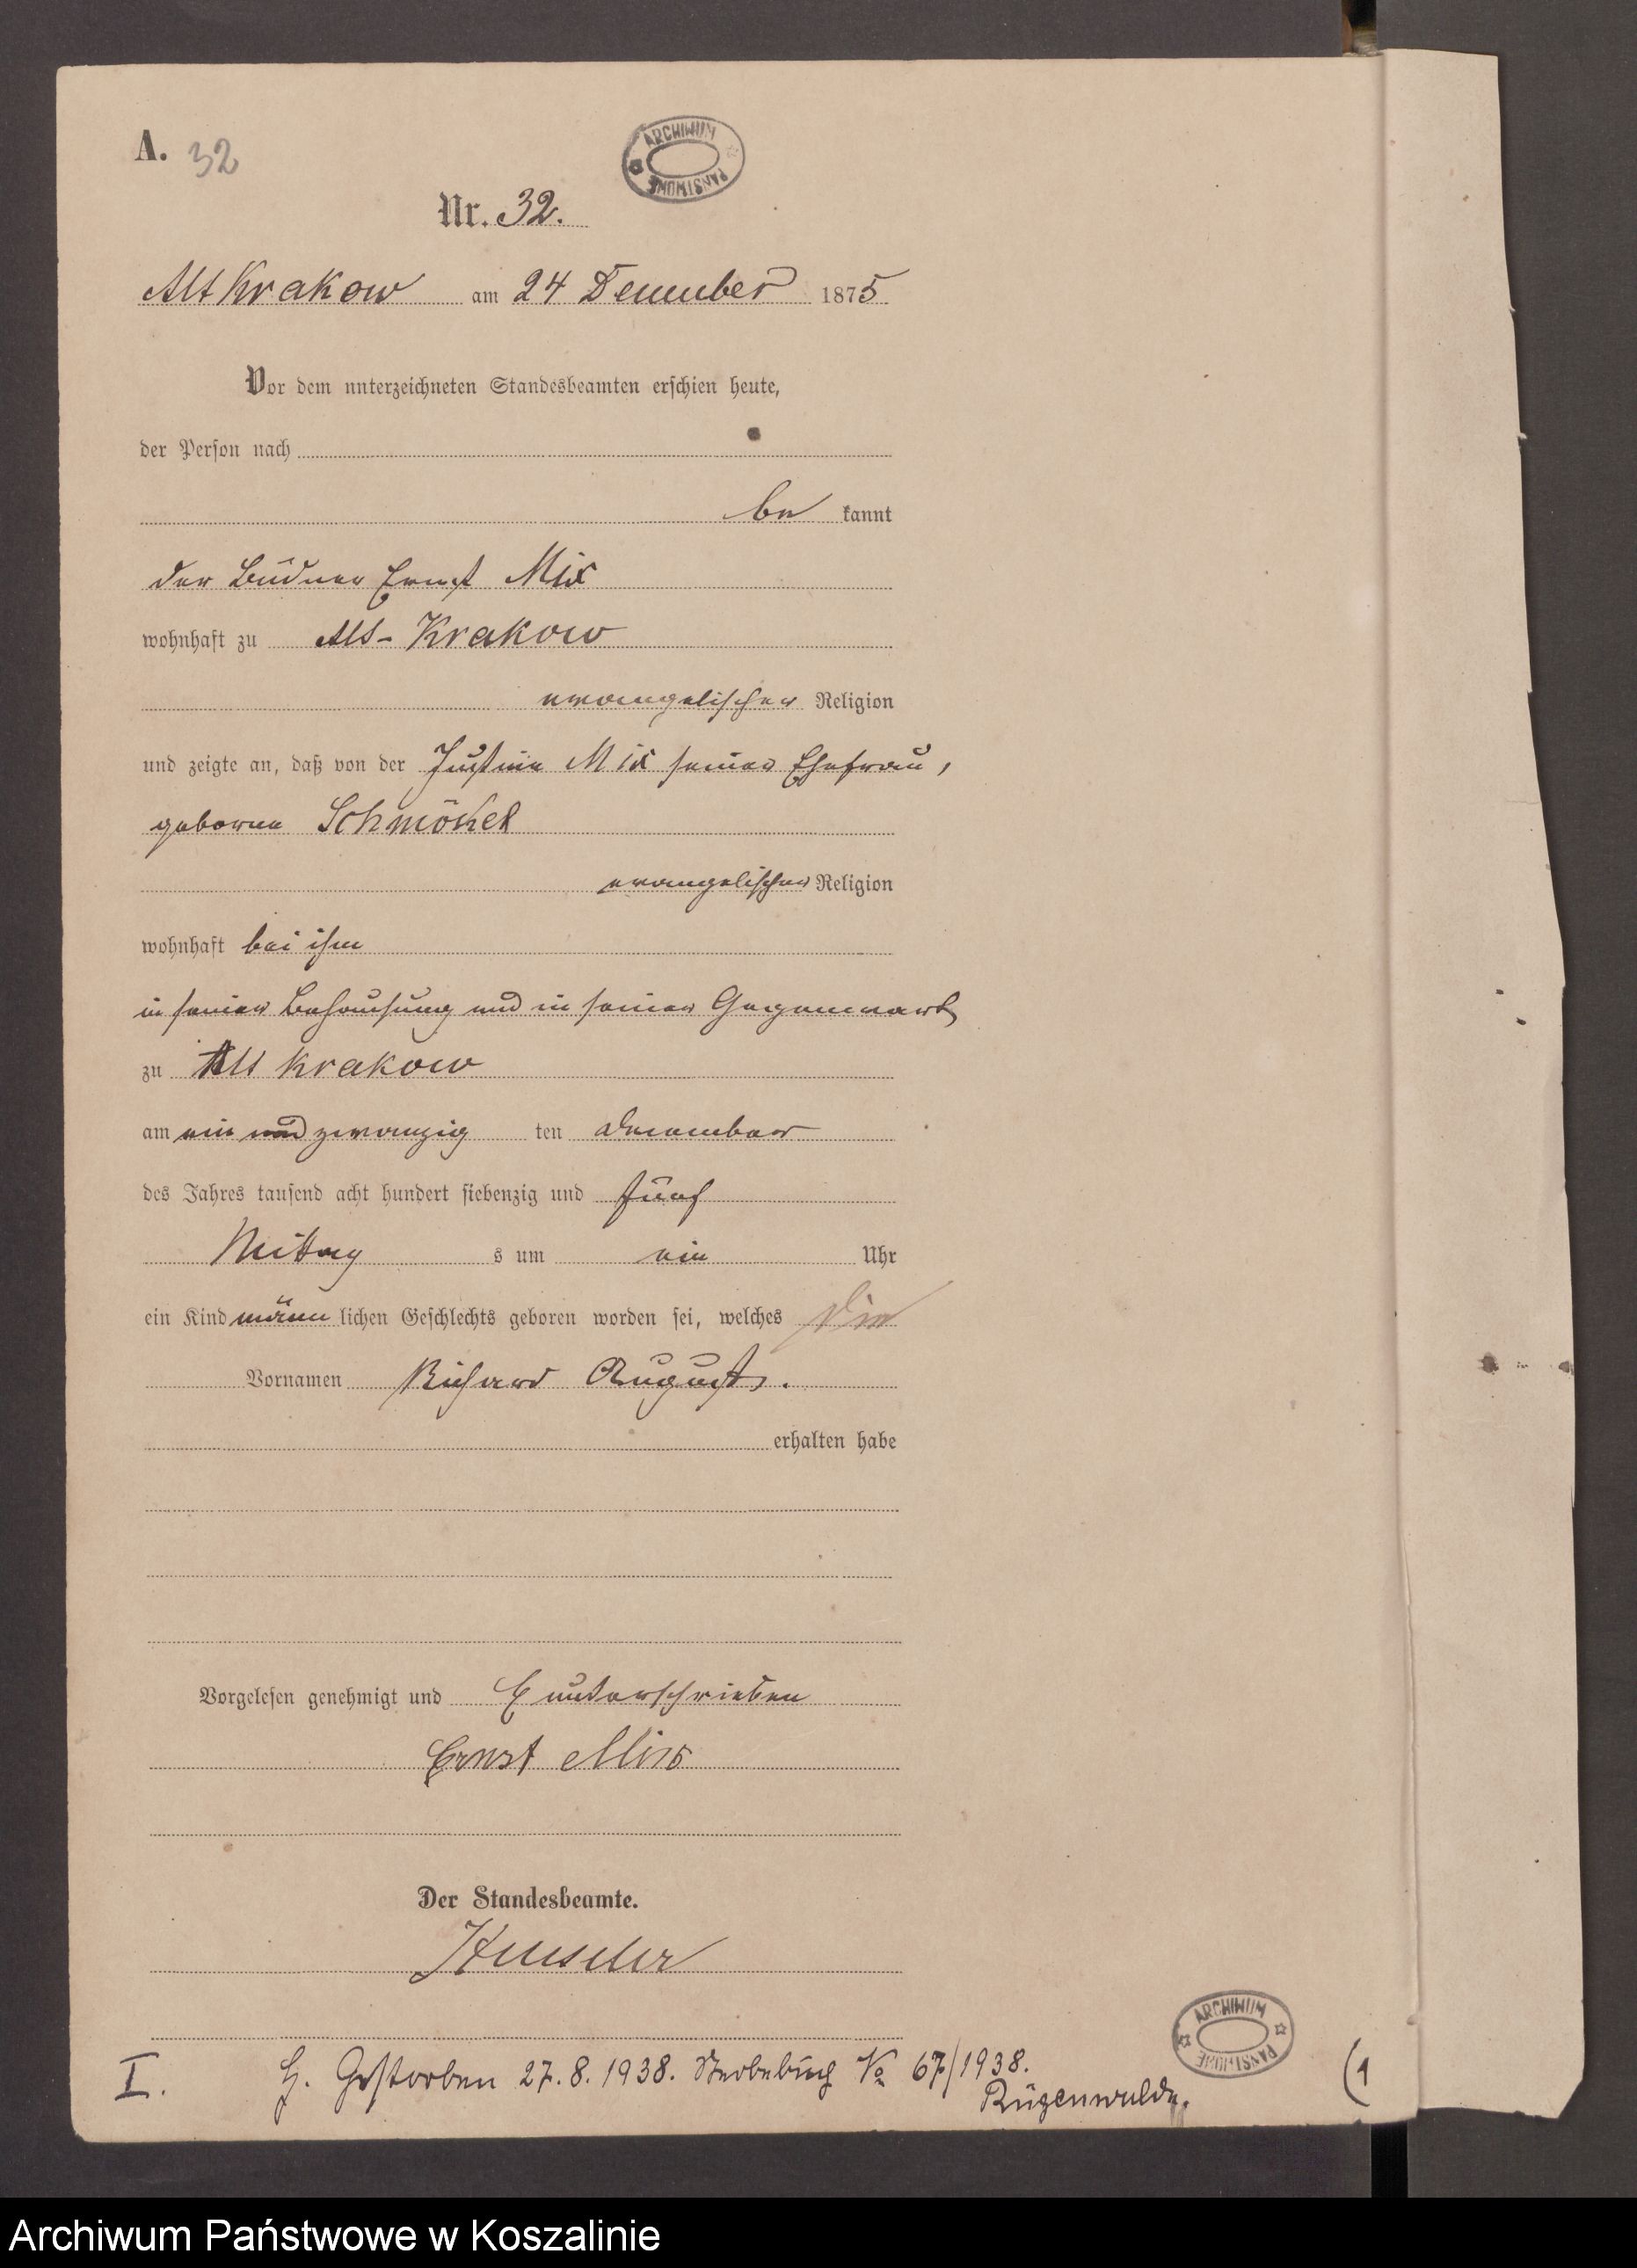 A. 32
ARCHIWUM PAŃSTWOWE
Nr. 32.
Alt Krakow am 24 December 1875
Vor dem unterzeichneten Standesbeamten erschien heute,
der Person nach
be kannt
der Büdner Ernst Mix
wohnhaft zu Alt-Krakow
evangelischer Religion
und zeigte an, daß von der Justine Mix seiner Ehefrau,
geborne Schmökel
evangelischer Religion
wohnhaft bei ihm
in seiner Behausung und in seiner Gegenwart
zu Alt Krakow
am ein und zwanzig ten December
des Jahres tausend acht hundert siebenzig und fünf
Mittag s um ein Uhr
ein Kind männ lichen Geschlechts geboren worden sei, welches die
Vornamen Richard August.
erhalten habe
Vorgelesen genehmigt und unterschrieben
Ernst Mix
Der Standesbeamte.
ARCHIWUM PAŃSTWOWE
I. H. Gestorben 27.8.1938. Sterbebuch No 67/1938. (1
Rügenwalde.
Archiwum Państwowe w Koszalinie